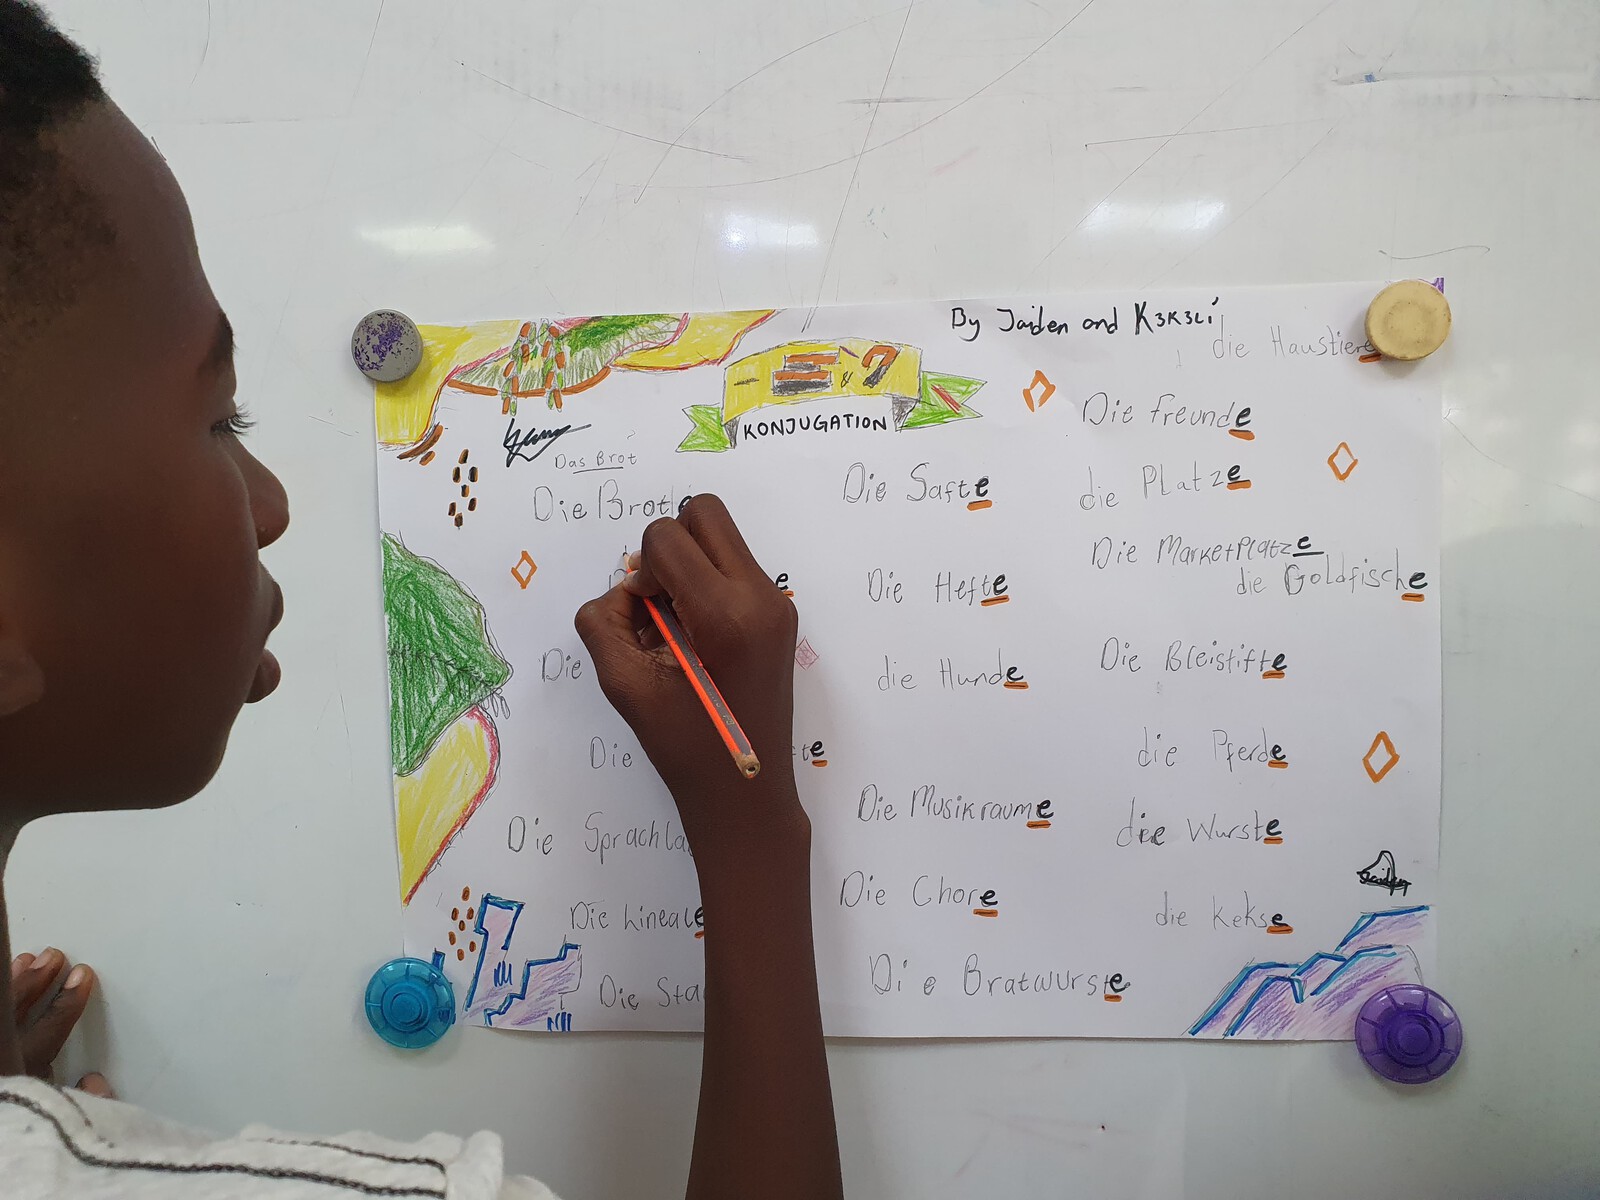 By Jaiden and K3K3Li
-E & ?
KONJUGATION
Das Brot
Die Brote
Die
Die
Die Sprachla
Die Lineale
Die Sta
Die Safte
Die Hefte
die Hunde
Die Musikraume
Die Chore
Die Bratwurste
die Haustiere
Die freunde
die Platze
Die Marketplatze
die Goldfische
Die Bleistifte
die Pferde
die Wurste
die Kekse
Jaiden